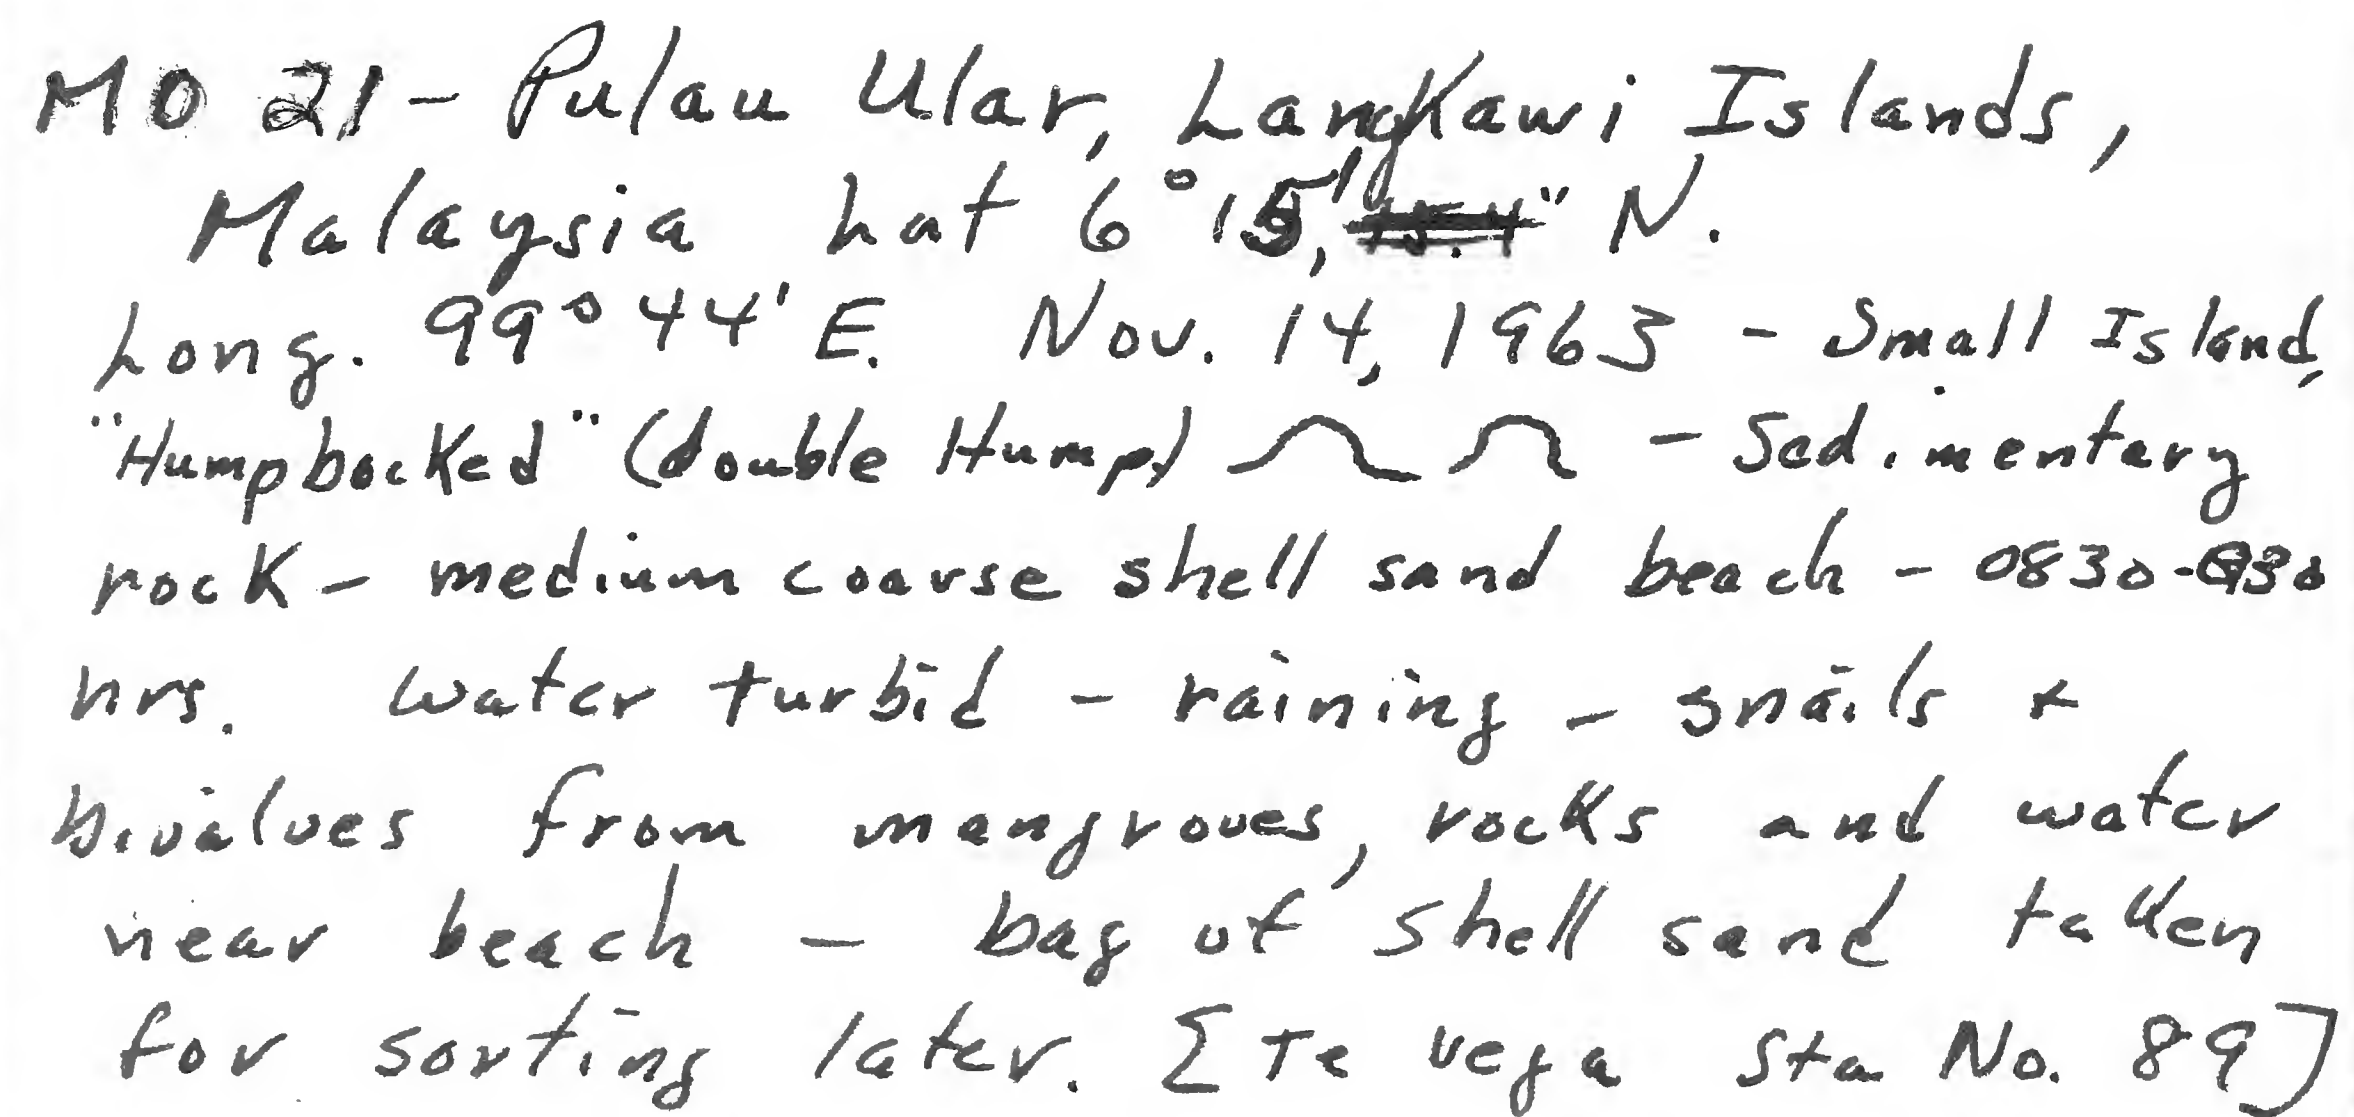 MO 21 - Pulau Ular, Langkawi Islands,
Malaysia Lat 6°15' N.
Long. 99°44' E. Nov. 14, 1963 - Small Island,
"Humpbacked" (double Hump) - Sedimentary
rock - medium coarse shell sand beach - 0830-930
hrs. Water turbid - raining - snails +
bivalves from mangroves, rocks and water
near beach - bag of shell sand taken
for sorting later. [Te Vega Sta No. 89]